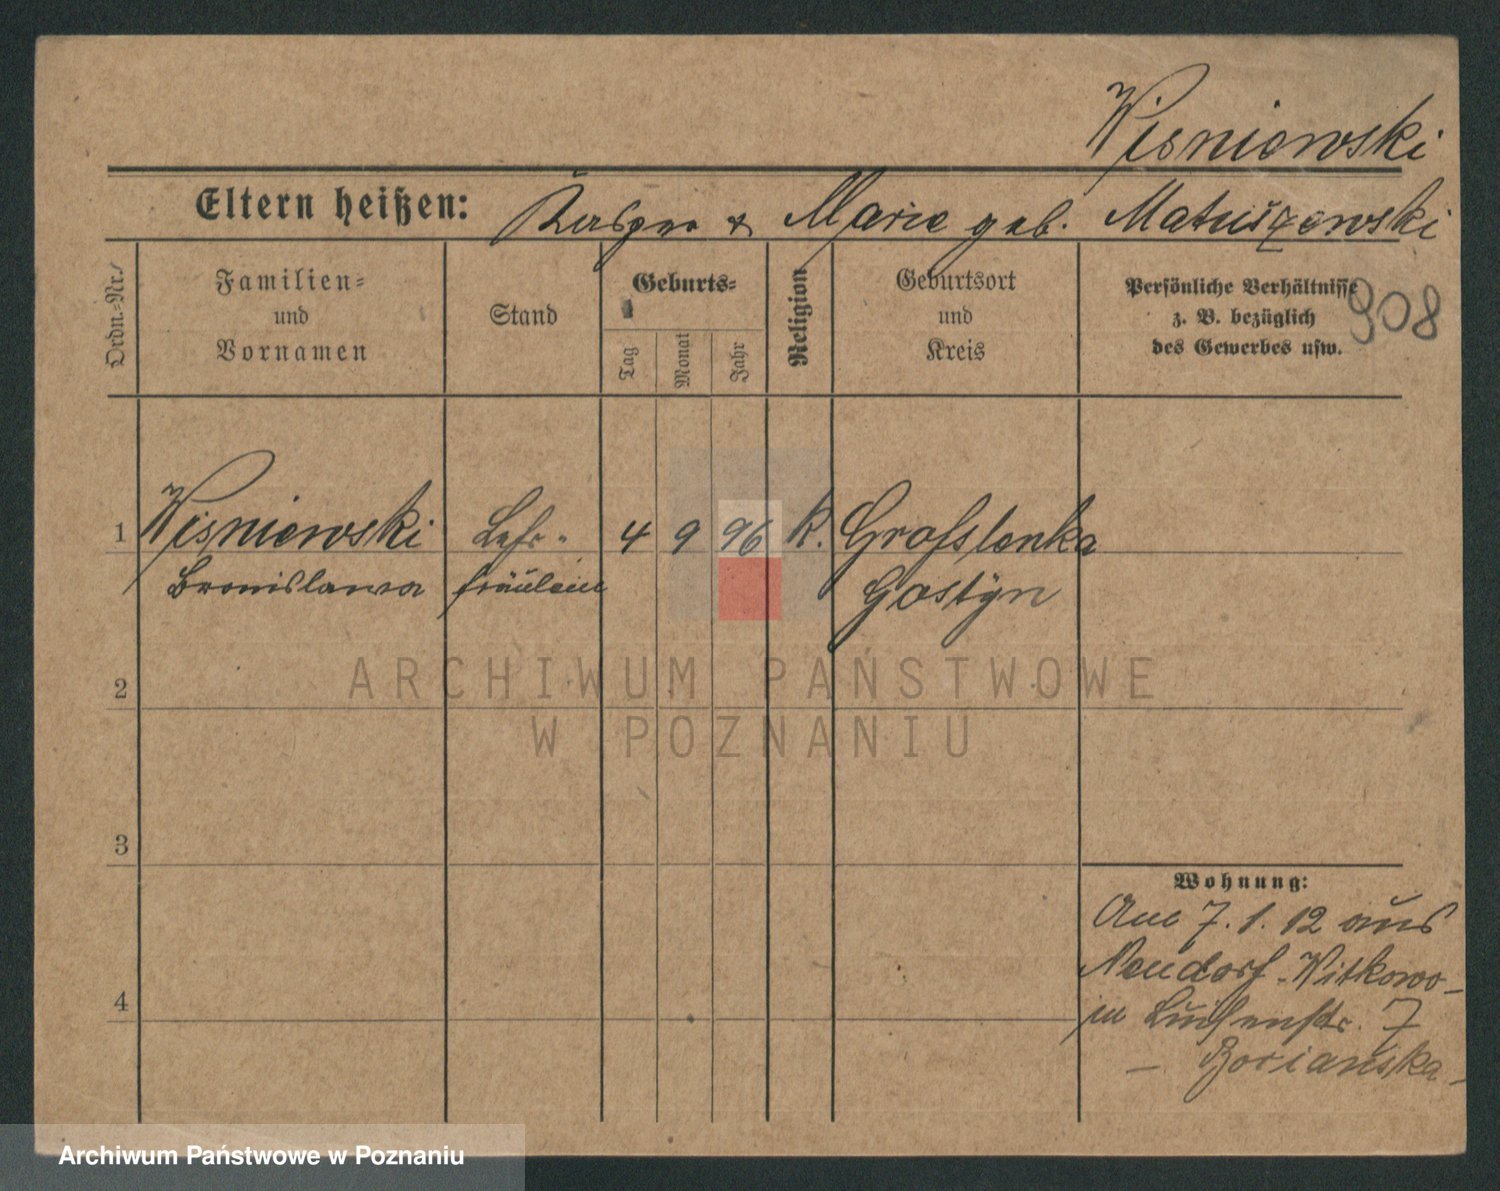 Wisniewski
Eltern heißen: Kasper & Marie geb. Matuszewski
Ordn.-Nr.
Familien-
und
Vornamen
Stand
Geburts-
Tag
Monat
Jahr
Religion
Geburtsort
und
Kreis
Persönliche Verhältnisse
z. B. bezüglich
des Gewerbes usw.
908
1 Wisniewski Lehr- 4 9 96 K. Grofslenka
Bronislawa fräulein Gostyn
2
ARCHIWUM PAŃSTWOWE
W POZNANIU
3
Wohnung:
Am 7.1.12 aus
Neudorf-Witkowo-
in Luisenstr. 7
4
Archiwum Państwowe w Poznaniu